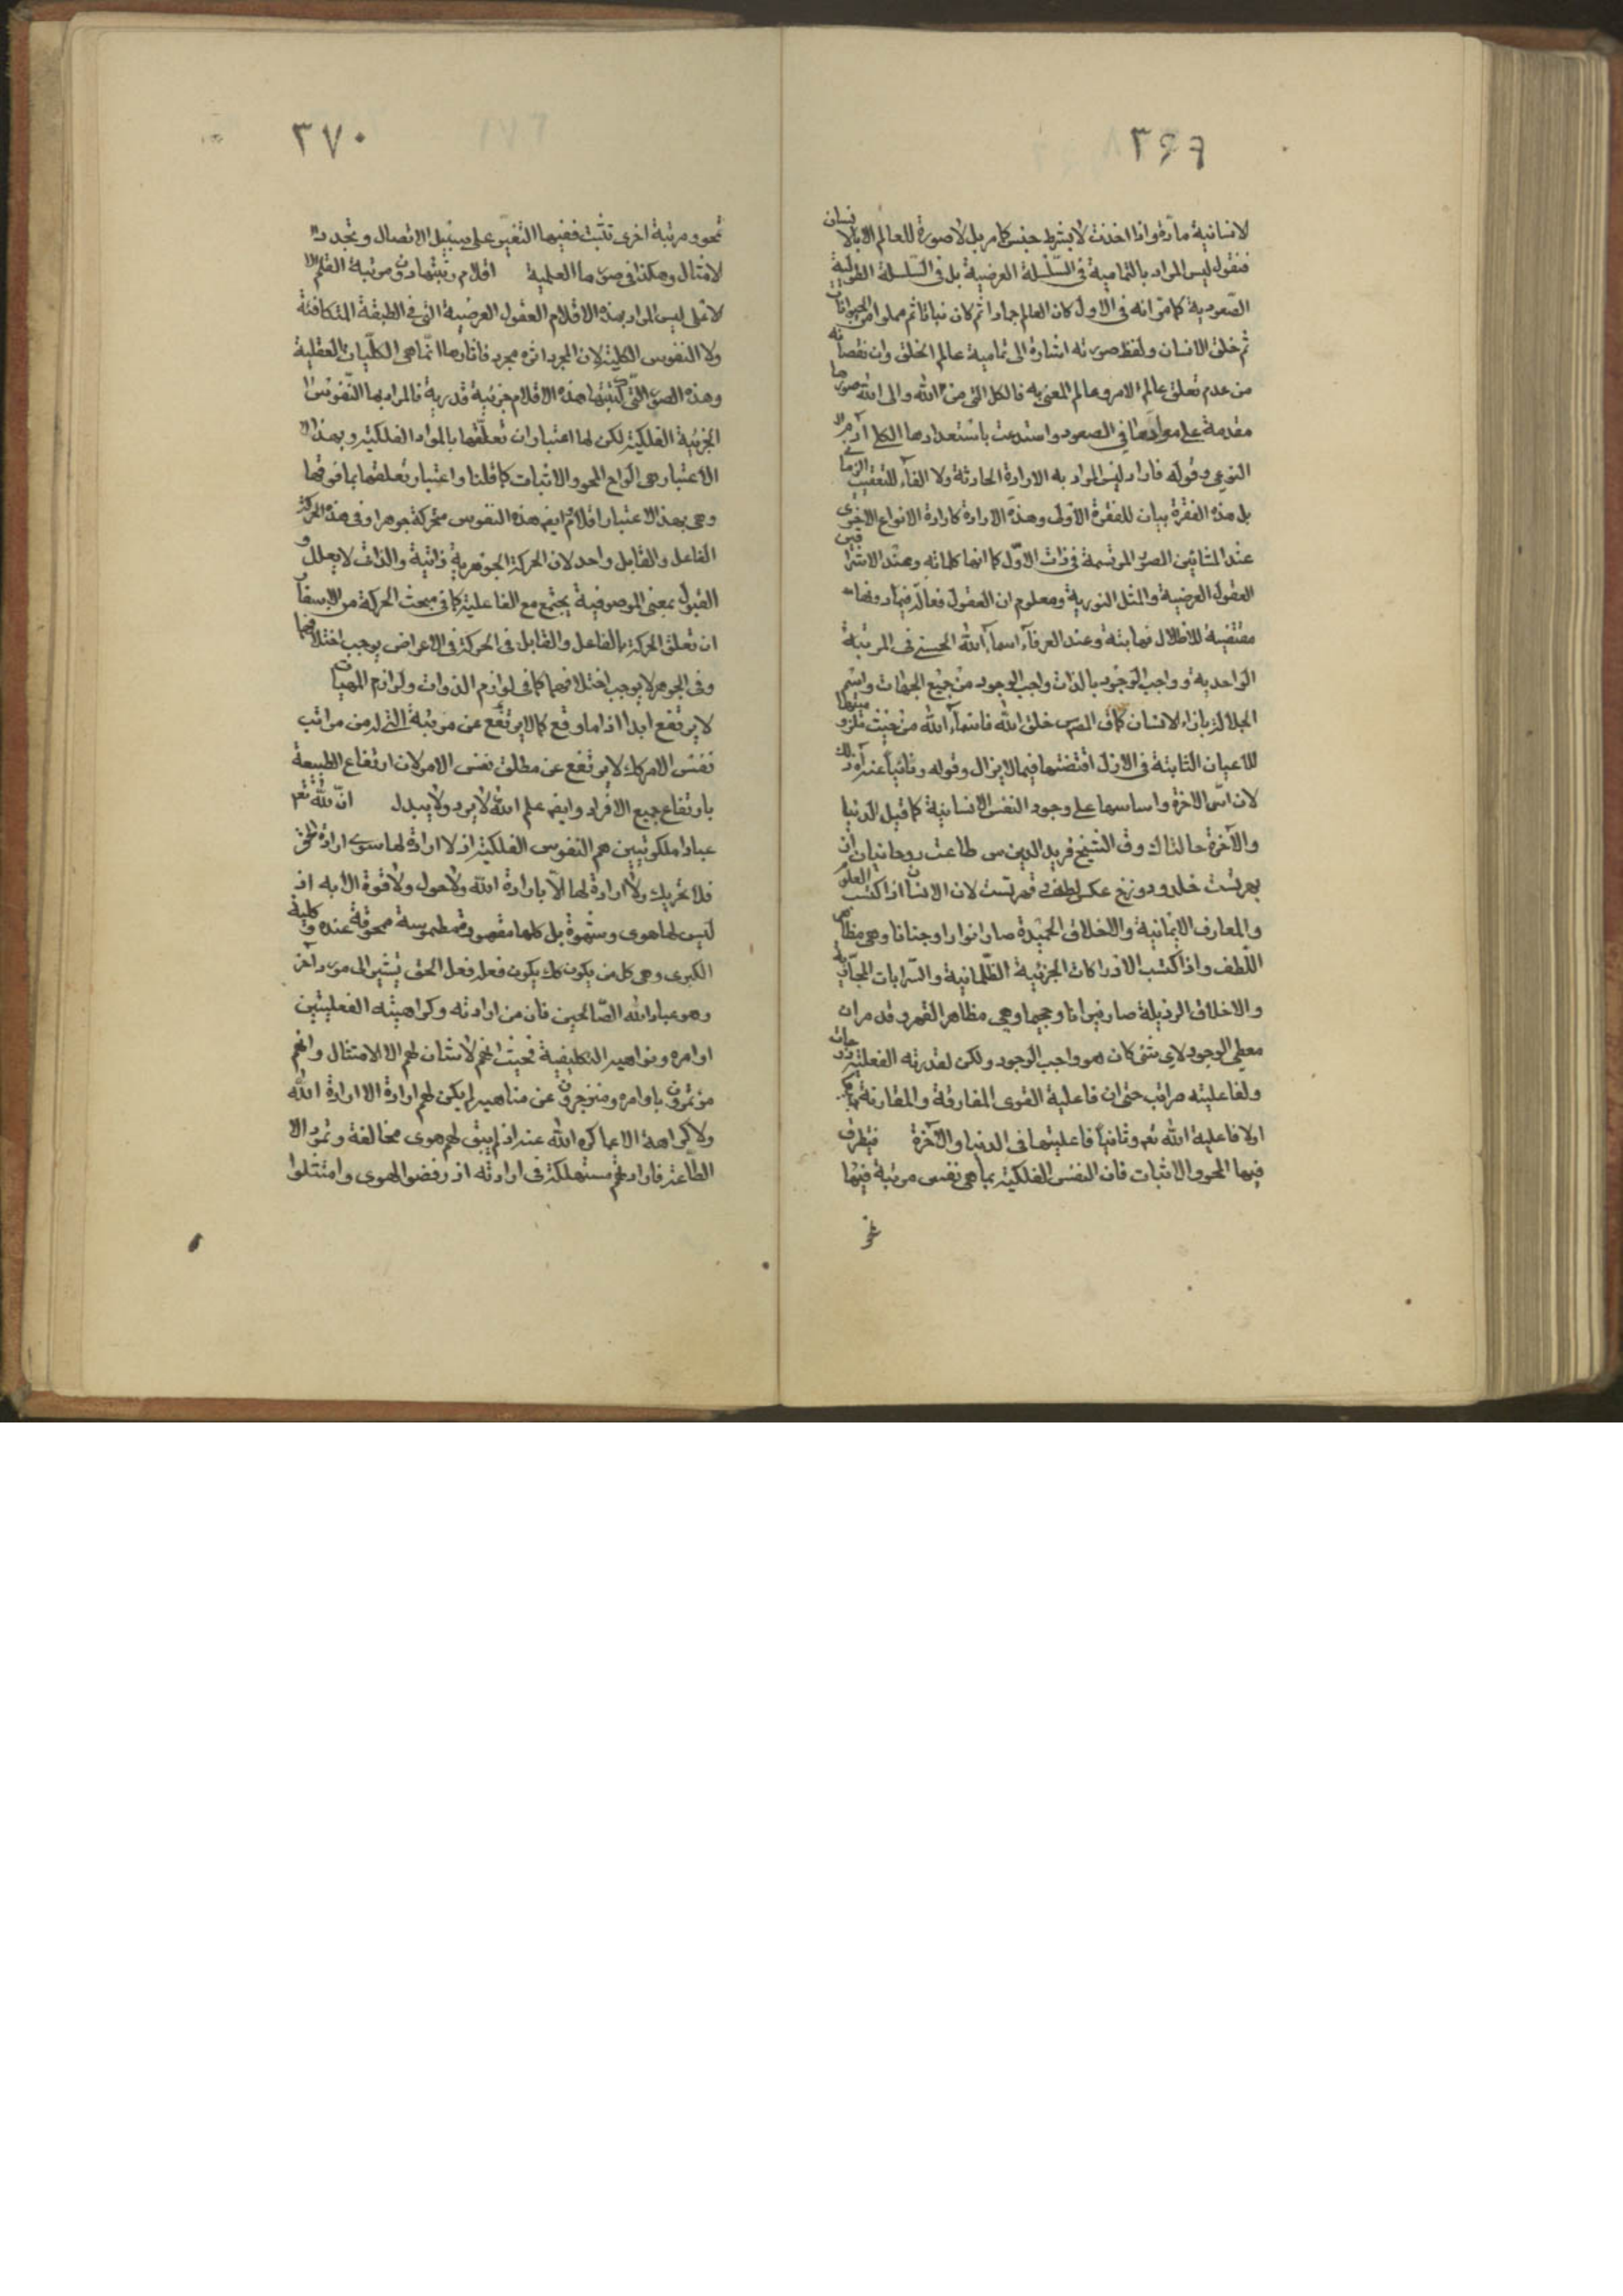 ٣٦٩
لانسانية مادة واذا اخذت لا بشرط جنس كما مر بل لا صورة للعالم الا بالانسان
فنقول ليس المراد بالتمامية في السلسلة العرضية بل في السلسلة الطولية
الصعودية كما مر انه في الاول كان العالم جمادا ثم كان نباتا ثم مملوا من الحيوانات
ثم خلق الانسان ولفظ صورته اشارة الى تمامية عالم الخلق وان نقصانه
من عدم تعلق عالم الامر وعالم المعنى به فالكل التى من الله والى الله صورها
مقدمة على موادها في الصعود واستدعت باستعدادها الكل آدم
النوعي وقوله فاراد ليس المراد به الارادة الحادثة ولا الفاء للتعقيب الزمانى
بل هذه الفقرة بيان للفقرة الاولى وهذه الارادة كارادة الانواع الاخرى
عند المشائين الصور المرتسمة في ذات الاول كما انها كلماته وعند الاشراقيين
العقول العرضية والمثل النورية ومعلوم ان العقول فعالة فيما دونها
مقتضية للاظلال فيما بته وعند العرفاء اسماء الله الحسنى في المرتبة
الواحدية وواجب الوجود بالذات واجب الوجود من جميع الجهات واسم
الجلالة بازاء الانسان كما في خلق الله فاسماء الله من حيث ملزوميتها
للاعيان الثابتة في الازل اقتضتها فيما لا يزال وقوله وثانيا عند ذلك
لان اس الاخرة واساسها على وجود النفس الانسانية كما قيل الدنيا
والآخرة حالتاك وق الشيخ فريد الدين س طاعت روحانيان از
بهر تست خلد ودوزخ عكس لطف وقهر تست لان الانسان اذا كسب العلوم
والمعارف الايمانية والاخلاق الحميدة صار انوارا وجنانا وهى مظاهر
اللطف واذا كسب الادراكات الجزئية الظلمانية والسرابات المجازية
والاخلاق الرذيلة صار نيرانا وجحيما وهى مظاهر القهر وقد مر ان
معطى الوجود لاى شئ كان هو واجب الوجود ولكن لقدرته الفعلية درجات
ولفاعليته مراتب حتى ان فاعلية القوى المفارقة والمقارنة
اولا فاعلية الله تعم وثانيا فاعليتها فى الدنيا والآخرة فيتطرق
فيها المحو والاثبات فان النفس الفلكية بما هى نفس مرتبة فيها
تمحو
٣٧٠
تمحو ومرتبة اخرى تثبت ففيها التغير على سبيل الاتصال وتجدد
الامثال وهكذا فى صورها العلمية اقلام رتبتها دون مرتبة القلم
الاعلى ليس المراد بهذه الاقلام العقول العرضية التى في الطبقة المتكافئة
ولا النفوس الكلية لان المجرد اثره مجرد فاثارها انما هى الكليات العقلية
وهذه الصور التى كتبتها هذه الاقلام جزئية قدرية فالمراد بها النفوس
الجزئية الفلكية لكن لها اعتباران تعلقها بالمواد الفلكية وبهذا
الاعتبار هى الواح المحو والاثبات كما قلنا واعتبار تعلقها بما فوقها
وهى بهذا الاعتبار اقلام وايضا هذه النفوس متحركة جوهرا وفى هذه الحركة
الفاعل والقابل واحد لان الحركة الجوهرية ذاتية والذاتى لا يعلل و
القبول بمعنى الموصوفية يجتمع مع الفاعلية كما فى مبحث الحركة من الاسفار
ان تعلق الحركة بالفاعل والقابل فى الحركة فى الاعراض يوجب اختلافهما
وفى الجوهر لا يوجب اختلافهما كما فى لوازم الذوات ولوازم المهيات
لا يرتفع ابدا اذ ما وقع كما لا يرتفع عن مرتبة التى له من مراتب
نفس الامر كك لا يرتفع عن مطلق نفس الامر لان ارتفاع الطبيعة
بارتفاع جميع الافراد وايضا علم الله لا يرد ولا يبدل ان لله تعم
عبادا ملكوتيين هم النفوس الفلكية اذ لا ارادة لها سوى ارادة الحق
فلا تحريك ولا ارادة لها الا بارادة الله ولا حول ولا قوة الا به اذ
ليس لها هوى وشهوة بل كلها مقهورة مطموسة ممحوقة عنده وكلية
الكبرى وهى كل من يكون كك يكون فعله فعل الحق يشير الى مورد آخر
وهو عباد الله الصالحين فان من ارادته وكراهيته الفعليتين
اوامره ونواهيه التكليفية فحيث انهم لا شان لهم الا الامتثال وانهم
مؤتمرون باوامره ومنزجرون عن مناهيه لم يكن لهم ارادة الا ارادة الله
ولا كراهة الا عما كره الله عنه اذ لم يبق لهم هوى مخالفة وتمرد الا
الطاعة فارادتهم مستهلكة فى ارادته اذ رفضوا الهوى وامتثلوا